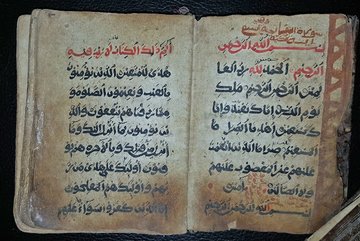 بسم الله الرحمن
الرحيم الحمد لله رب العا
لمين الرحمن الرحيم ملك
يوم الدين إياك نعبد وإيا
ك نستعين اهدنا الصراط ا
لمستقيم صراط الذين أنعمت
عليهم غير المغضوب عليهم
ولا الضالين آمين
بسم الله الرحمن الرحيم
الم ذلك الكتاب لا ريب فيه
هدى للمتقين الذين يؤمنون
بالغيب ويقيمون الصلوة و
مما رزقنهم ينفقون والذين
يؤمنون بما أنزل إليك وما
أنزل من قبلك وبالآخرة هم يو
قنون أولئك على هدى من ر
بهم وأولئك هم المفلحون
إن الذين كفروا سواء عليهم